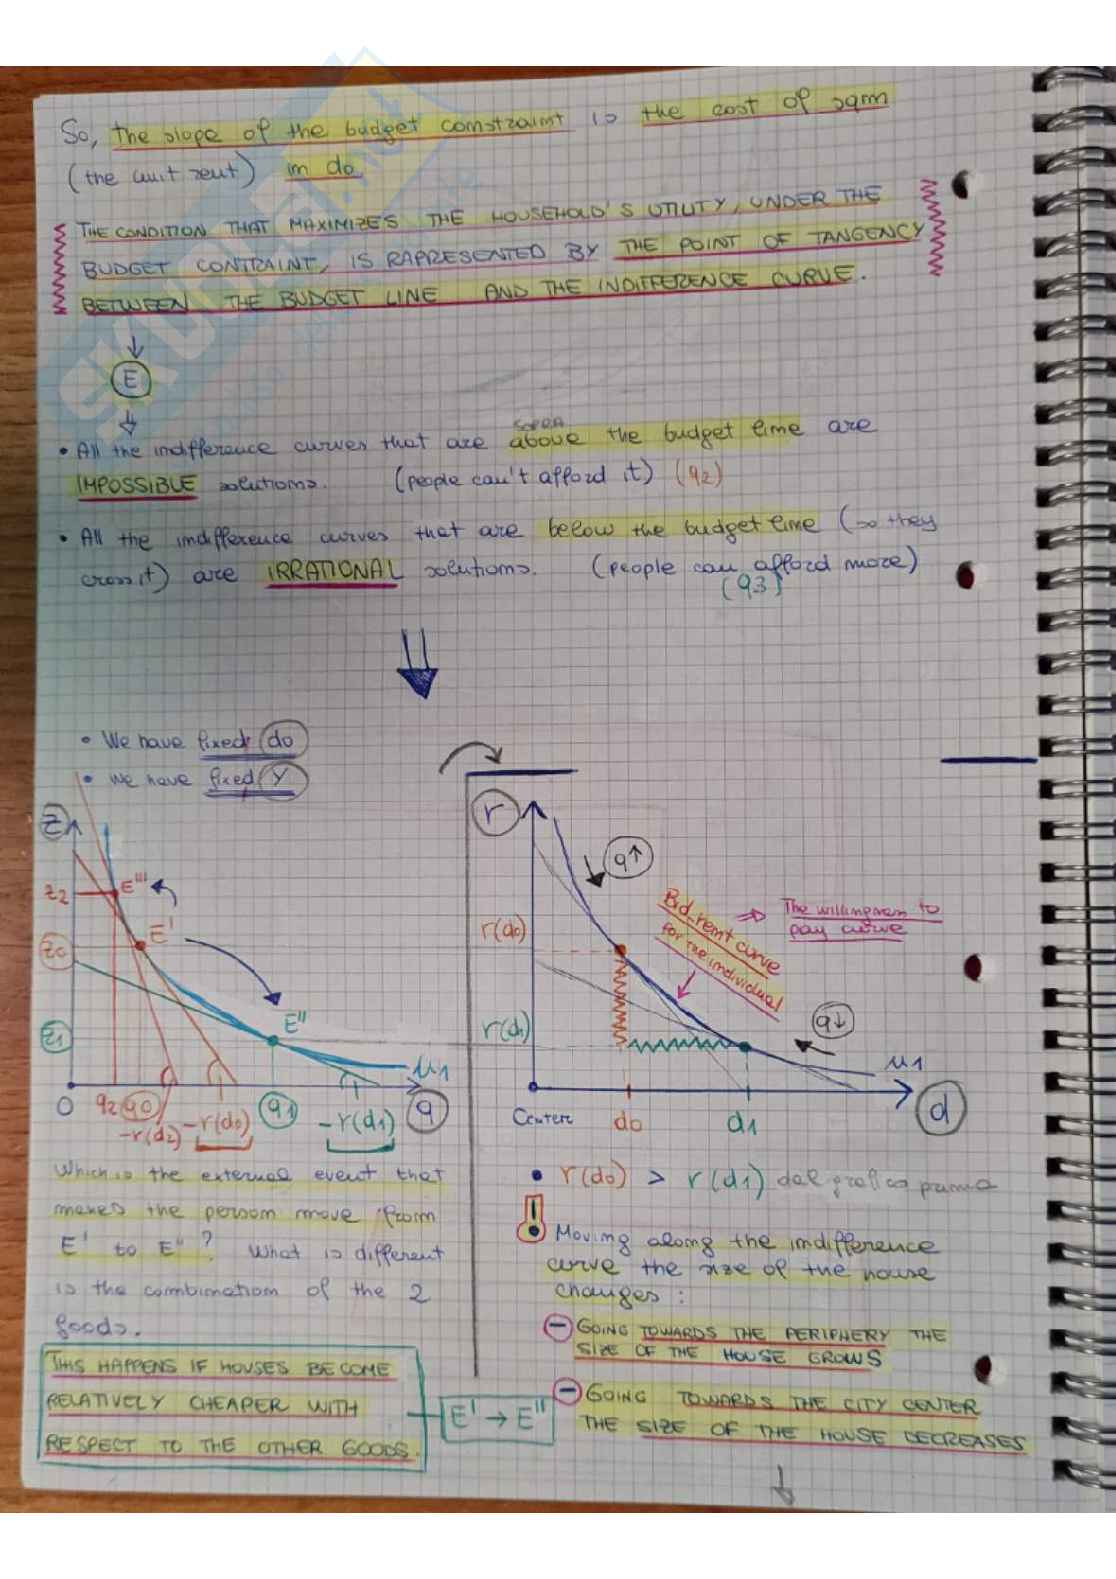 So, the slope of the budget constraint is the cost of sqm
(the unit rent) in do
THE CONDITION THAT MAXIMIZES THE HOUSEHOLD'S UTILITY, UNDER THE
BUDGET CONTRAINT, IS RAPRESENTED BY THE POINT OF TANGENCY
BETWEEN THE BUDGET LINE AND THE INDIFFERENCE CURVE.
E
SOPRA
• All the indifference curves that are above the budget line are
IMPOSSIBLE solutions. (people can't afford it) (q2)
• All the indifference curves that are below the budget line (so they
cross it) are IRRATIONAL solutions. (people can afford more)
(q3)
• We have fixed do
• We have fixed Y
Z
z2
E'''
E'
z0
E''
z1
u1
0
q2 q0
q1
q
-r(d2)
-r(d0)
-r(d1)
r
q↑
Bid-rent curve
for the individual
⇒ The willingness to
pay curve
r(d0)
r(d1)
q↓
u1
Centere
d0
d1
d
Which is the external event that
makes the person move from
E' to E''? What is different
is the combination of the 2
goods.
THIS HAPPENS IF HOUSES BECOME
RELATIVELY CHEAPER WITH
RESPECT TO THE OTHER GOODS.
E' → E''
• r(d0) > r(d1) dal grafico prima
Moving along the indifference
curve the size of the house
changes:
- GOING TOWARDS THE PERIPHERY THE
SIZE OF THE HOUSE GROWS
- GOING TOWARDS THE CITY CENTER
THE SIZE OF THE HOUSE DECREASES